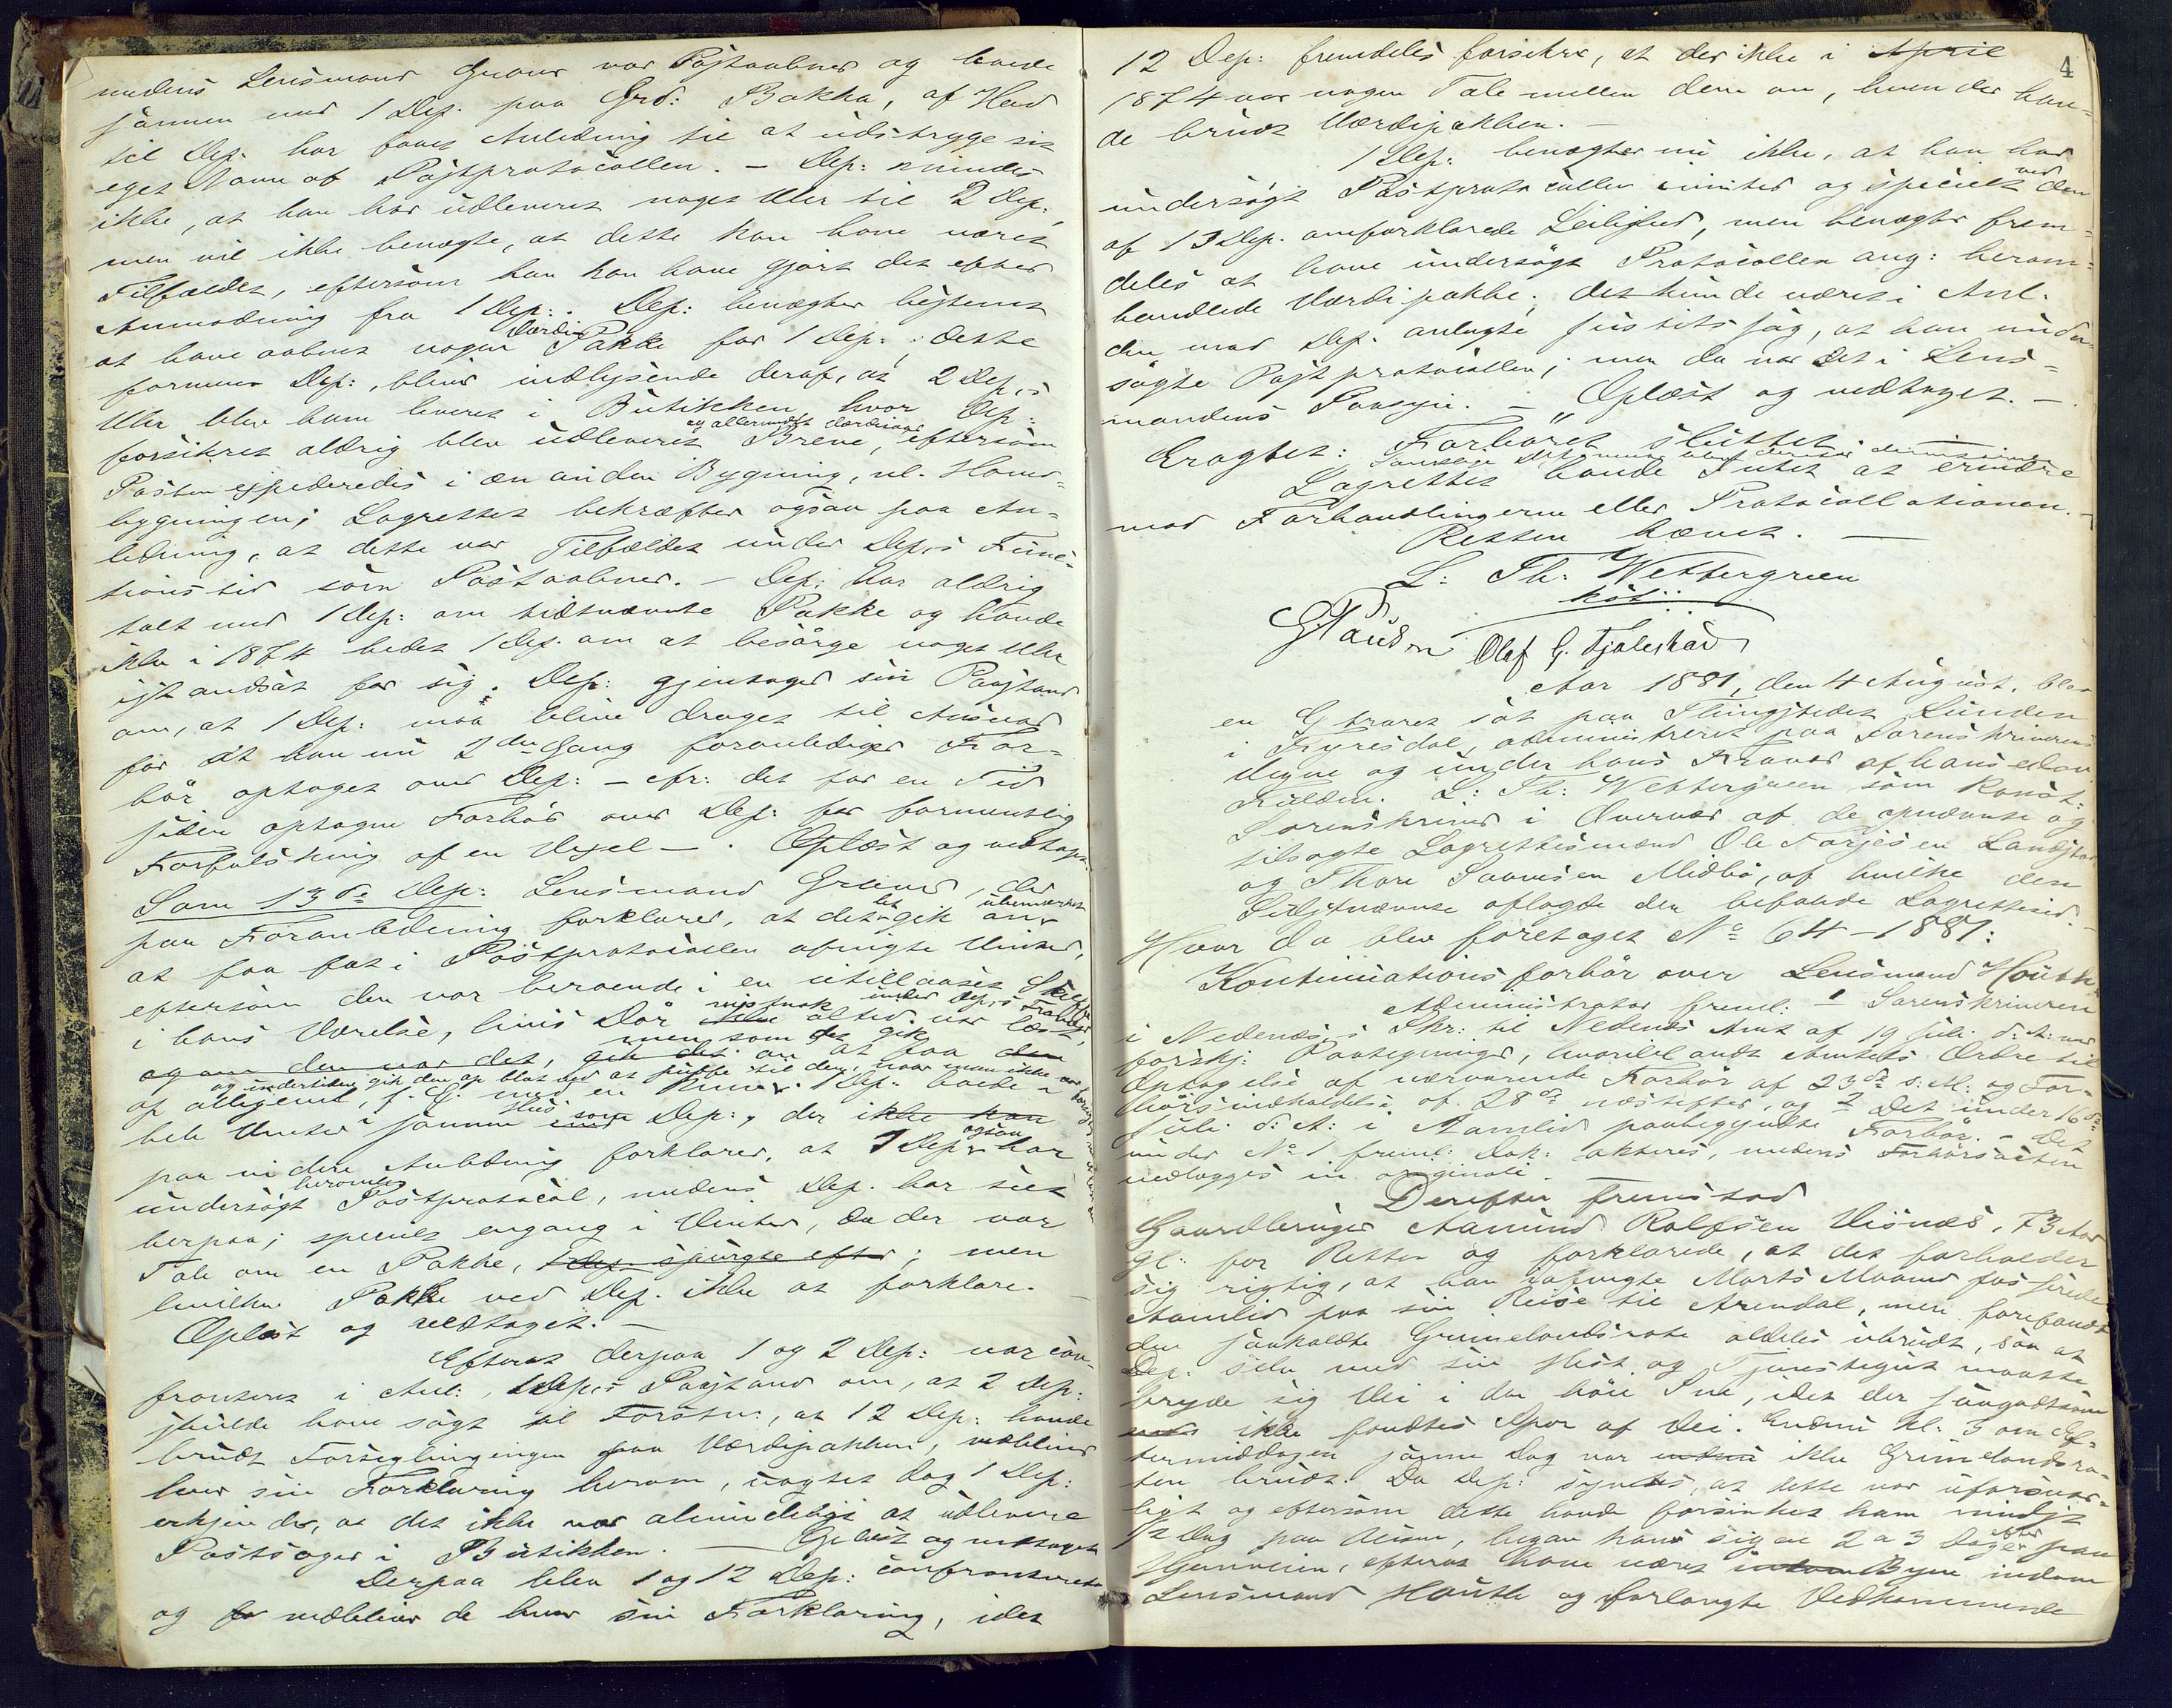 medens Lensmand Graver var Postaabner og boede
sammen med 1 Dep. paa Grd: Bakka, af Had
til Dep. har faaet Anledning til at udstryge sit
eget Navn af Postprotocollen. — Dep: mindes
ikke, at han har udleveret noget Uhr til 2 Dep.,
men vil ikke benægte, at dette kan have været
Tilfældet, eftersom han kan have gjort det efter
Anmodning fra 1 Dep:. Dep: benægter bestemt
at have aabnet nogen Værdi Pakke for 1 Dep:; dette
formener Dep:, bliver indlysende deraf, at 2 Dep.s
Uhr blev ham leveret i Butikken hvor Dep:
forsikrer aldrig blev udleveret Breve, og allermindst Værdisager eftersom
Posten expederedes i en anden Bygning, nl. Hoved-
bygningen; Lagrettet bekræfter ogsaa paa An-
ledning, at dette var Tilfældet under Dep.s Func-
tionstid som Postaabner. — Dep: har aldrig
talt med 1 Dep: om sidstnævnte Pakke og havde
ikke i 1874 bedet 1 Dep. om at besørge noget Uhr
istandsat for sig. Dep: gjentager sin Paastand
om, at 1 Dep: maa blive draget til Ansvar
for at han nu 2den Gang foranlediger For-
hør optaget over Dep: — cfr: det for en Tid
siden optagne Forhør over Dep: for formentlig
Forfalskning af en Vexel —. Oplæst og vedtaget.
Som 13de Dep: Lensmand Graver, der
paa Foranledning forklarer, at det let gik an ubemærket
at faa fat i Postprotocollen afvigte Vinter,
eftersom den var beroende i en utillaaset Skuffe
i hans Værelse, hvis Dør ikke altid var læst,
og om den var det, gik det an at faa den
op alligevel, f. Ex. med en Kniv. 1 Dep. boede
hele Vinter i samme Hus som Dep:, der ikke kan
paa videre Anledning forklarer, at 1 Dep. ogsaa har
undersøgt heromhdl. Postprotocol, medens Dep. har seet
herpaa; specielt engang i Vinter, da der var
Tale om en Pakke, 1 Dep. spurgte efter; men
hvilken Pakke ved Dep. ikke at forklare. —
Oplæst og vedtaget. —
Efterat derpaa 1 og 2 Dep: var con-
fronteret i Anl: 1 Dep.s Paastand om, at 2 Dep:
skulde have sagt til Forstnv:, at 12 Dep: havde
brudt Forseglingingen paa Værdipakken, vedbliver
hver sin Forklaring herom, uagtet dog 1 Dep:
erkjender, at det ikke var almindeligt at udlevere
Postsager i Butikken. — Oplæst og vedtaget
Derpaa blev 1 og 12 Dep: confronterede
og for vedbliver de hver sin Forklaring, idet
4
12 Dep: fremdeles forsikrer, at der ikke i April
1874 var nogen Tale mellem dem om, hvem der hav-
de brudt Værdipakken. —
1 Dep: benægter nu ikke, at han har
undersøgt Postprotocollen i Vinter og specielt ved den
af 13 Dep. omforklarede Leilighed, men benægter frem-
deles at have undersøgt Protocollen ang: herom-
handlede Værdipakke; det kunde været i Anl.
den mod Dep. anlagte Justitssag, at han under-
søgte Postprotocollen; men da var det i Lens-
mandens Paasyn. — Oplæst og vedtaget. —
Eragtet: Forhøret sluttet
Lagrettet havde Intet at erindre
mod Forhandlingerne eller Protocollationen. —
Retten hævet. —
L: Th: Wettergreen
kst:
Olaf G. Fjalestad
Aar 1881, den 4 August, blev
en Extraret sat paa Thingstedet Lunden
i Fyresdal, administreret paa Sorenskriverens
Vegne og under hans Ansvar af hans edsv.
Fuldm. L: Th: Wettergreen som Konst:
Sorenskriver i Overvær af de opnævnte og
tilsagte Lagrettesmænd Ole Torjesen Landstad
og Thore Saavesen Midbø, af hvilke den
Sidstnævnte aflagde den befalede Lagrettesed. —
Hvor da blev foretaget No 64 — 1881:
Kontinuationsforhør over Lensmand Houth
Administrator freml: 1 Sorenskriveren
i Nedenæs's Skr: til Nedenæs Amt af 19 Juli d: A: med
forskj: Paategninger, hvoriblandt Amtets Ordre til
Optagelse af nærværende Forhør af 23de s. M: og For-
hørsindkaldelse af 28de næstefter, og 2 Det under 16de
Juli d: A: i Aamlid paabegyndte Forhør. — Det
under No 1 freml: Dok: akteres, medens Forhørsacten
vedlægges in originali.
Derefter fremstod
Gaardbruger Aamund Rolfsen Visnæs, 73 Aar
gl. for Retten og forklarede, at det forholder
sig rigtig, at han i afvigte Marts Maaned passerede
Aamlid paa sin Reise til Arendal, men forefandt
den saakaldte Grimelandsrode aldeles ubrudt, saa at
Dep. selv med sin Hest og Tjenestegut maatte
bryde sig Vei i den høie Sne, idet der saagodtsom
ikke fandtes Spor af Vei. Endnu Kl. 3 om Ef-
termiddagen samme Dag var endnu ikke Grimelandsro-
den brudt. Da Dep: syntes, at dette var uforsvar-
ligt og eftersom dette havde forsinket ham mindst
1/2 Dag paa Veien, begav han sig en 2 a 3 Dage efter paa
Hjemveien, efterat have været i Byen indom
Lensmand Houth og forlangte Vedkommende